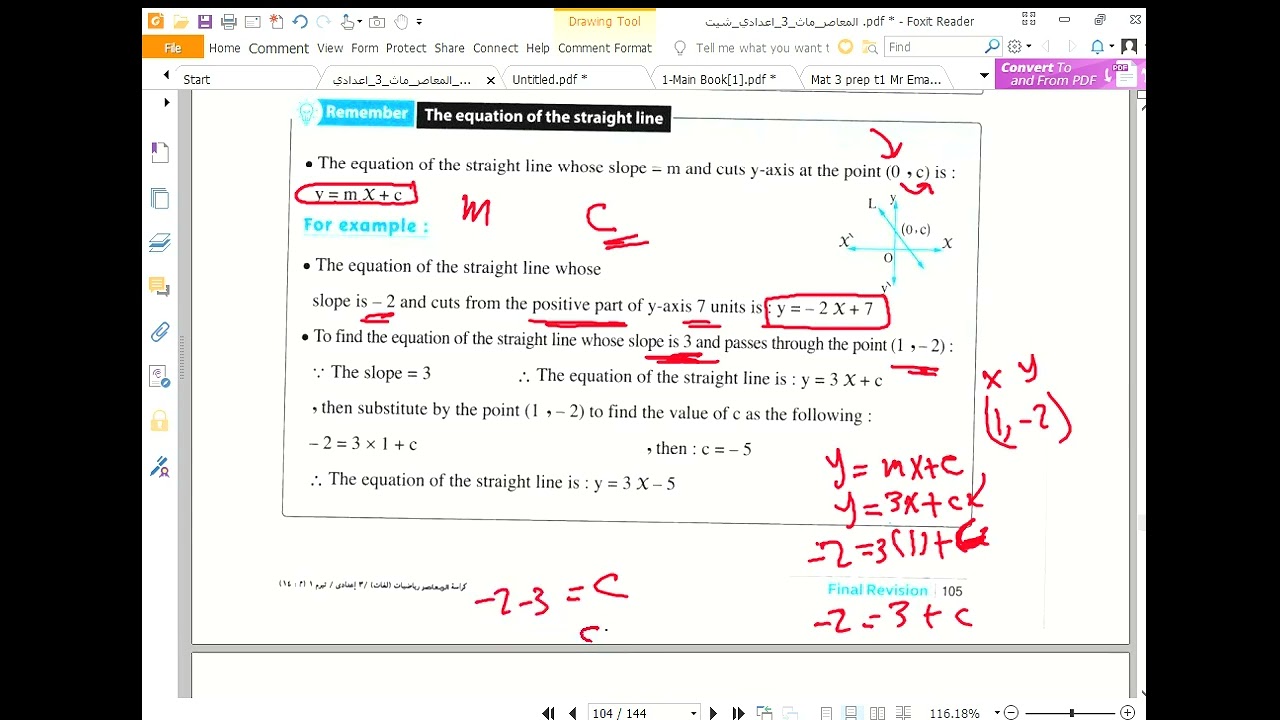 Drawing Tool
المعاصر_ماث_3_اعدادي_شيت .pdf * - Foxit Reader
File Home Comment View Form Protect Share Connect Help Comment Format Tell me what you want t Find
Start
المعاصر_ماث_3_اعدادي_...
Untitled.pdf *
1-Main Book[1].pdf *
Mat 3 prep t1 Mr Ema...
Convert To
and From PDF
PDF
Remember The equation of the straight line
• The equation of the straight line whose slope = m and cuts y-axis at the point (0 , c) is :
y = m X + c
m
c
For example :
L y
(0,c)
X` X
O
y`
• The equation of the straight line whose
slope is – 2 and cuts from the positive part of y-axis 7 units is : y = – 2 X + 7
• To find the equation of the straight line whose slope is 3 and passes through the point (1 , – 2) :
∵ The slope = 3 ∴ The equation of the straight line is : y = 3 X + c
, then substitute by the point (1 , – 2) to find the value of c as the following :
– 2 = 3 × 1 + c , then : c = – 5
∴ The equation of the straight line is : y = 3 X – 5
x y
(1, -2)
y = mx+c
y = 3x+c
-2 = 3(1)+c
-2 = 3 + c
-2-3 = c
c
كراسة المعاصر رياضيات (لغات) /٣ إعدادى / تيرم ١ (م : ١٤)
Final Revision 105
104 / 144
116.18%